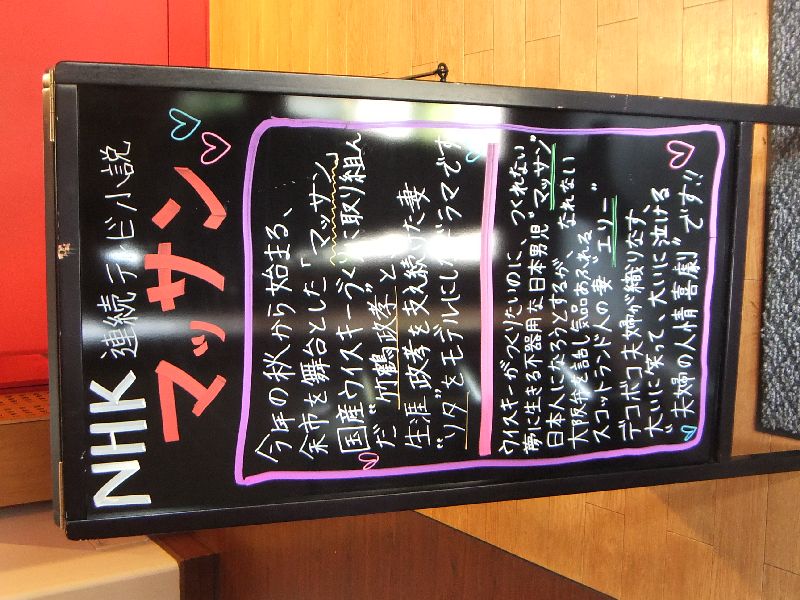 NHK 連続テレビ小説
マッサン
今年の秋から始まる、
余市を舞台とした「マッサン」
国産ウイスキーづくりに取り組ん
だ"竹鶴政孝"と、
生涯政孝を支え続けた妻
"リタ"をモデルにしたドラマです
ウイスキーがつくりたいのに、つくれない
夢に生きる不器用な日本男児"マッサン"
日本人になろうとするが、なれない
大阪弁を話し気品あふれる
スコットランド人の妻"エリー"
デコボコ夫婦が織りなす、
大いに笑って、大いに泣ける
"夫婦の人情喜劇"です!!